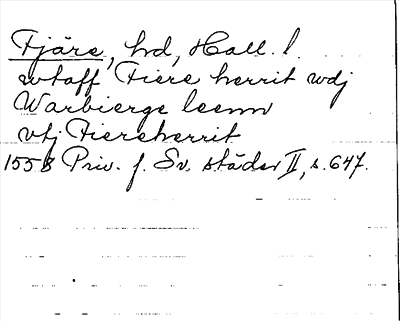 Fjäre, hd, Hall. l.
wtaff Fiere herrit wdj
Warbierge leenn
vtj Fiereherrit
1558 Priv. f. Sv. städer II, s. 647.